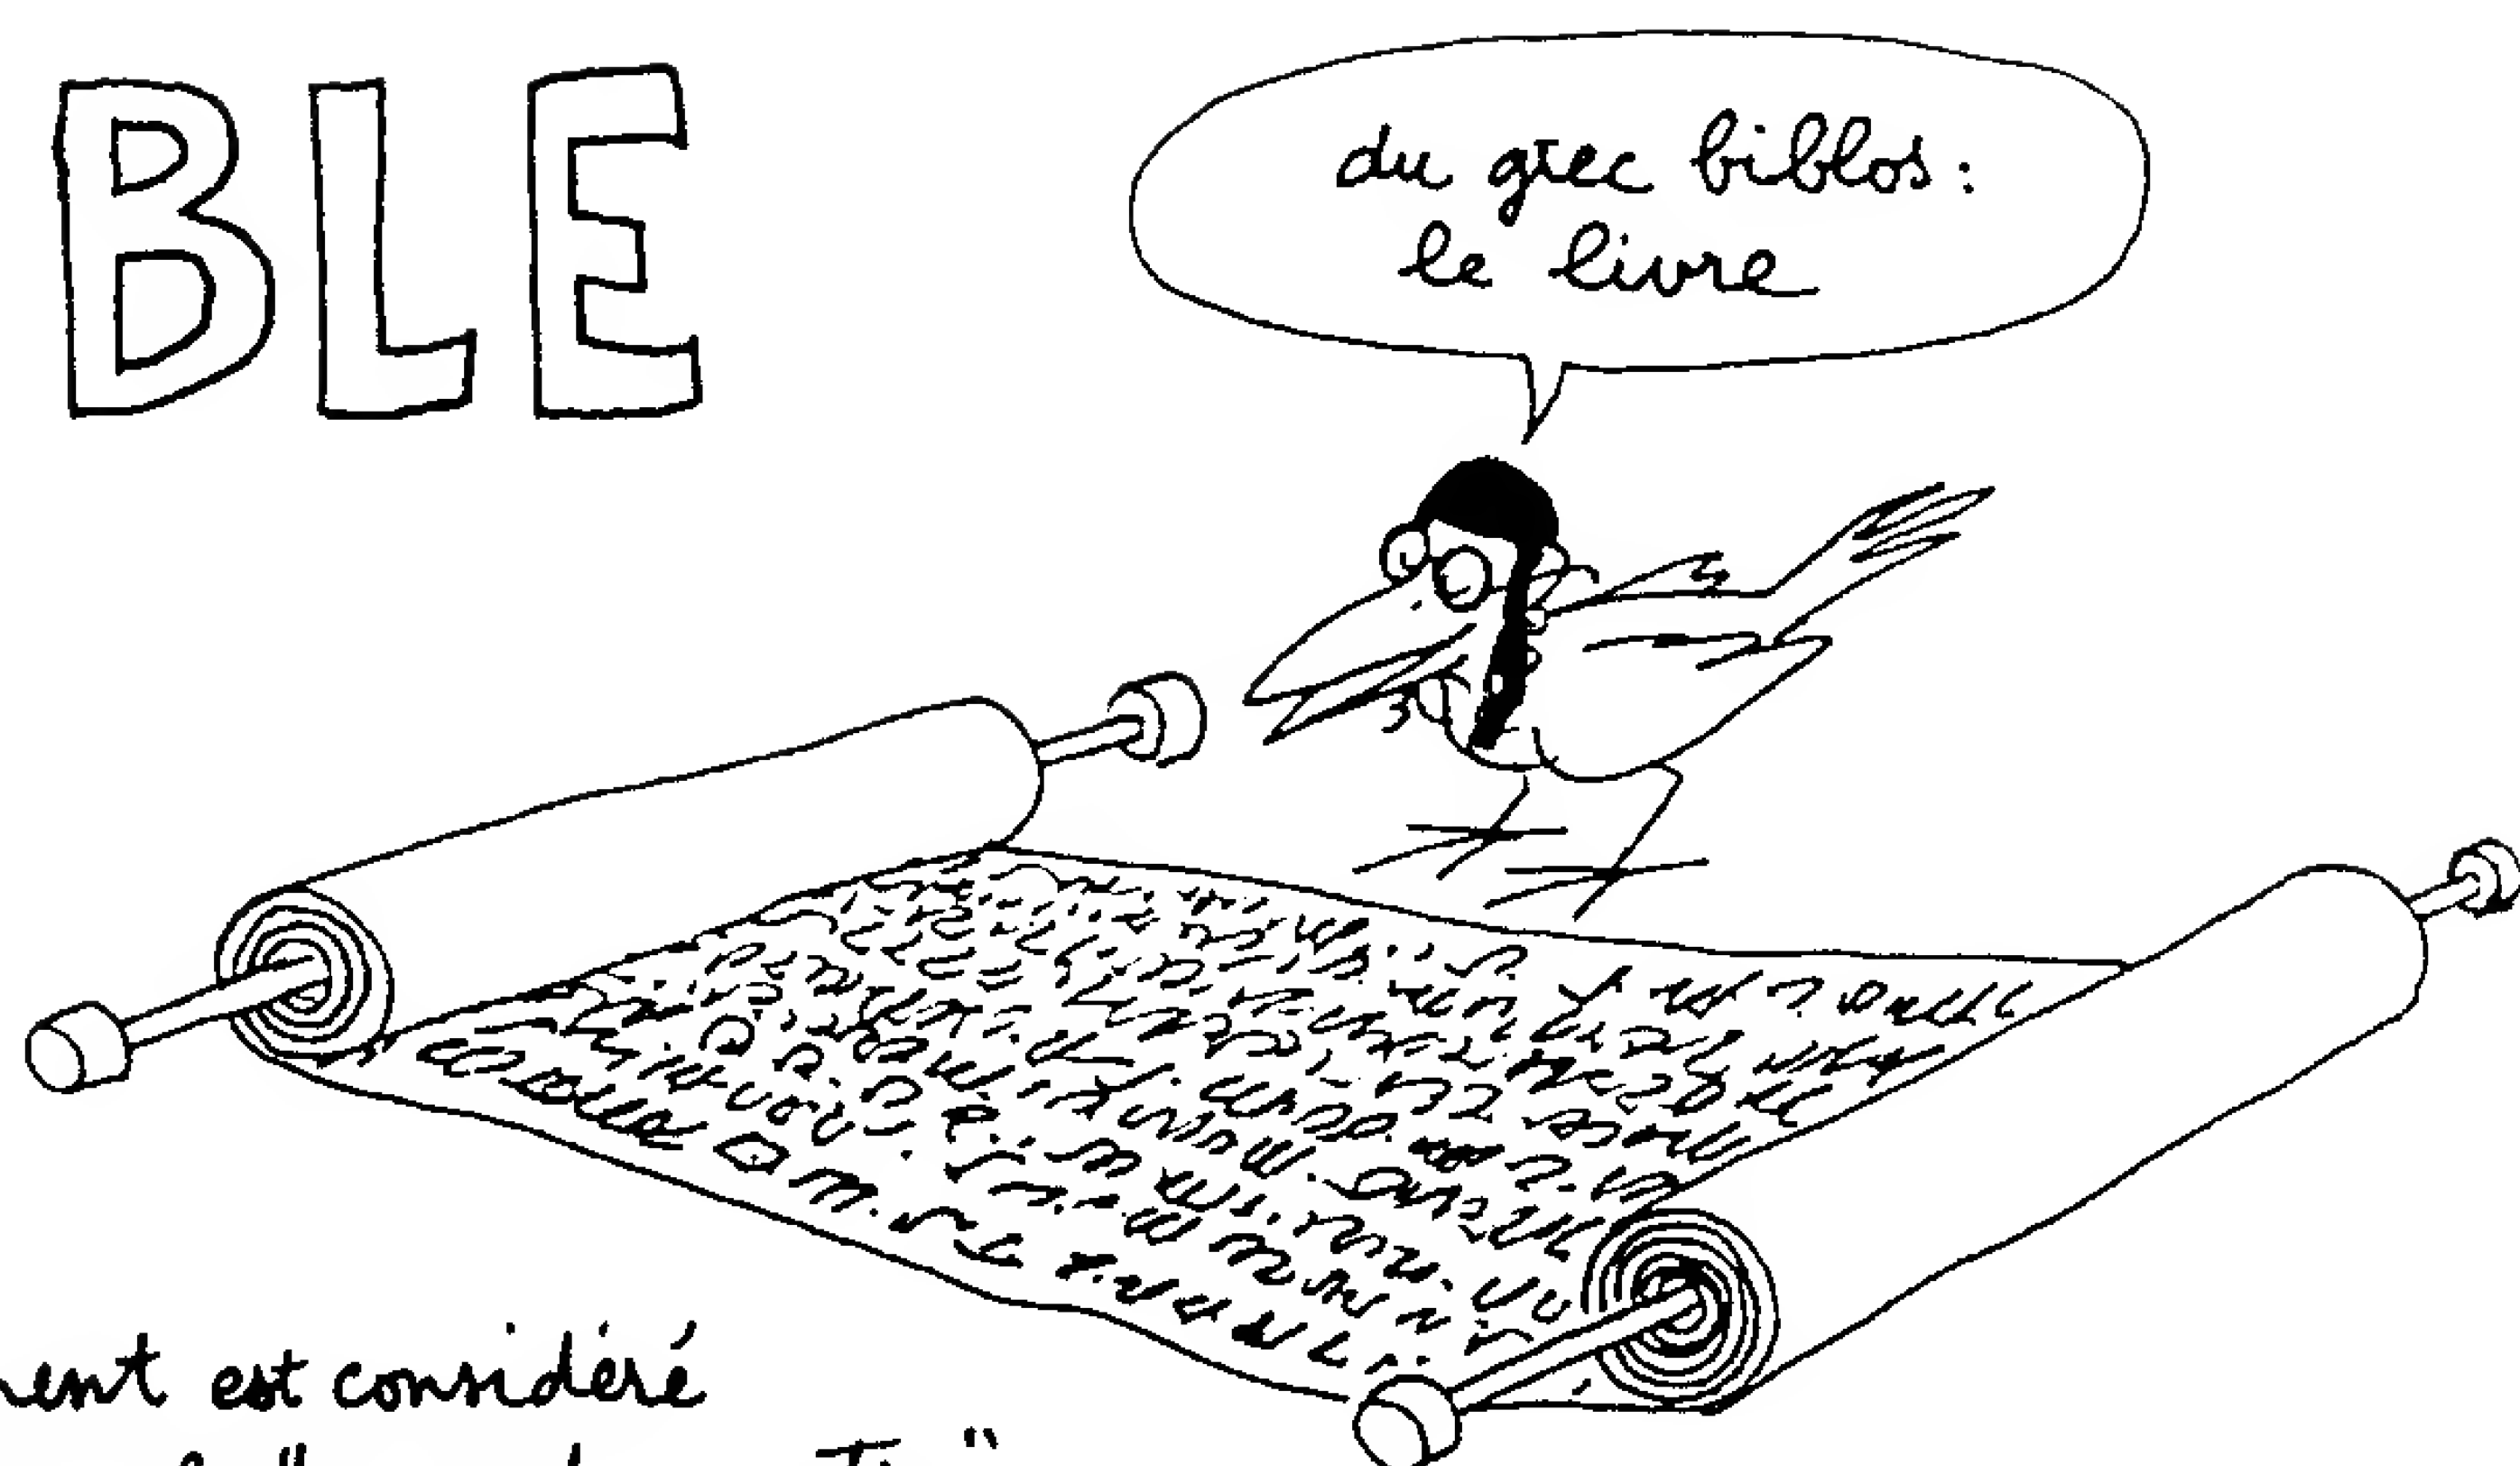 BLE
du grec biblos:
le livre
est considéré